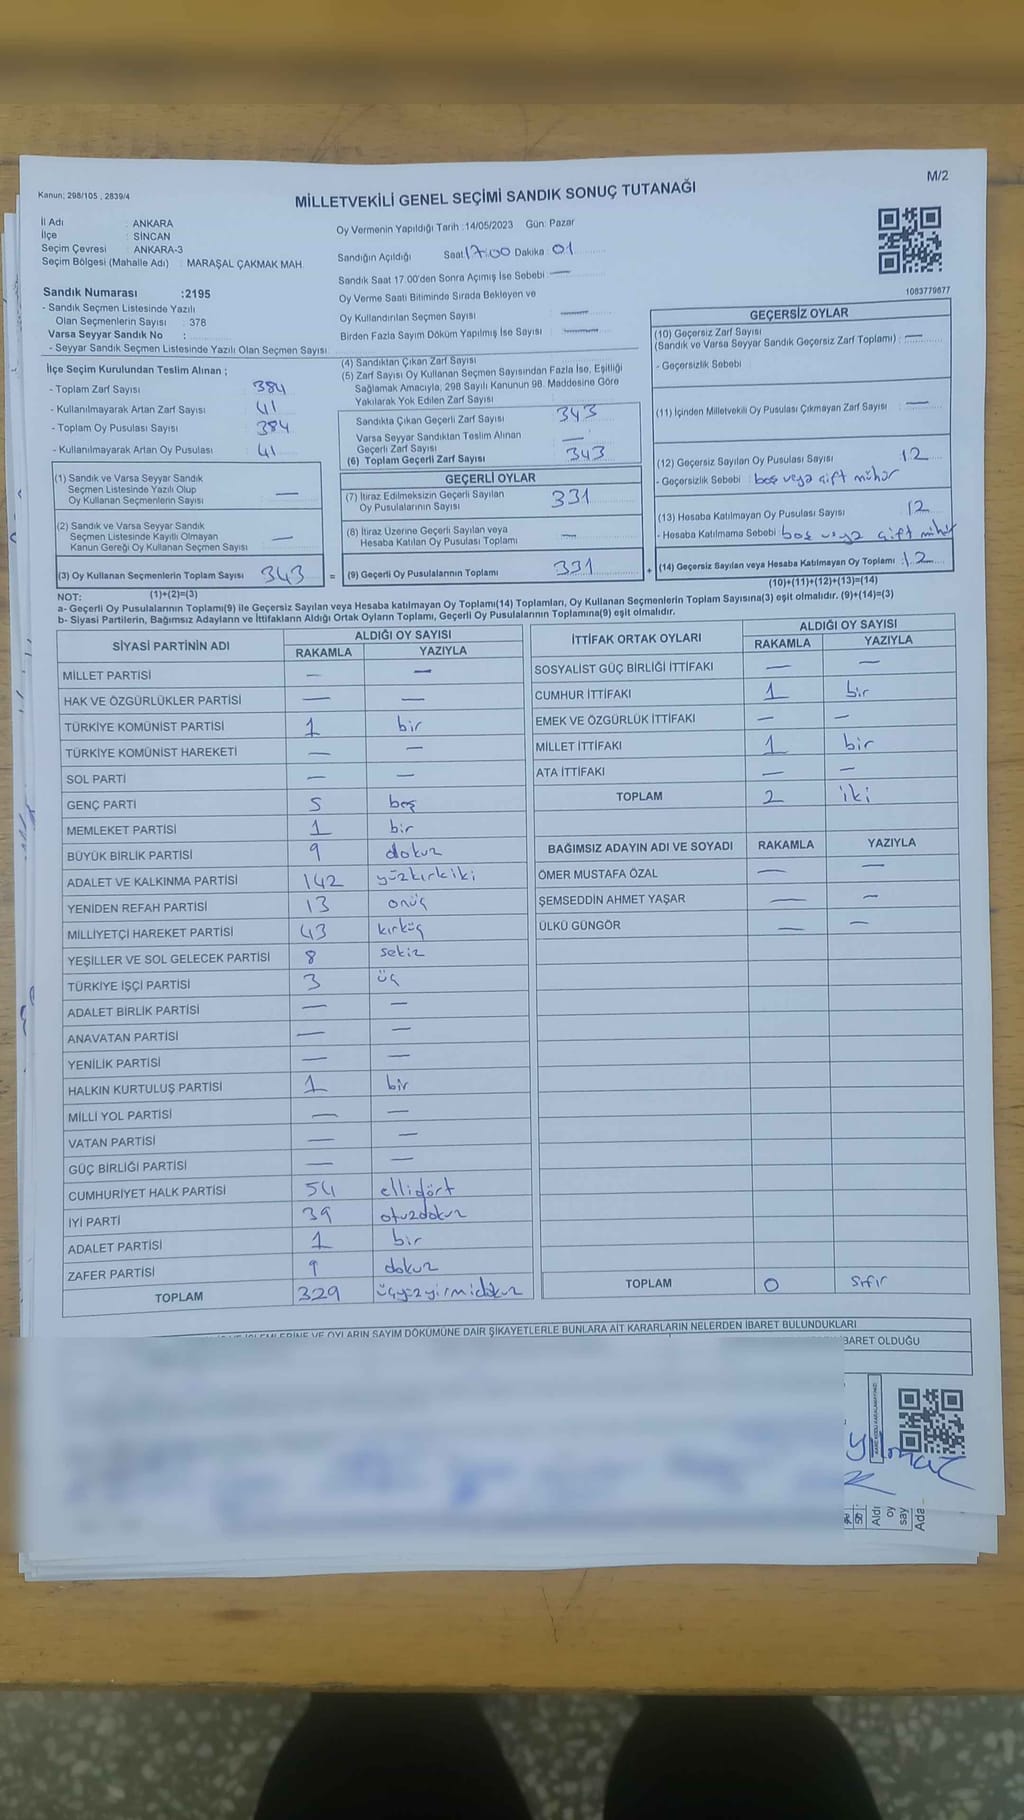 M/2
Kanun: 298/105 , 2839/4
MİLLETVEKİLİ GENEL SEÇİMİ SANDIK SONUÇ TUTANAĞI
İl Adı : ANKARA
İlçe : SİNCAN
Seçim Çevresi : ANKARA-3
Seçim Bölgesi (Mahalle Adı) : MARAŞAL ÇAKMAK MAH.
Sandık Numarası :2195
- Sandık Seçmen Listesinde Yazılı
Olan Seçmenlerin Sayısı : 378
Varsa Seyyar Sandık No :
- Seyyar Sandık Seçmen Listesinde Yazılı Olan Seçmen Sayısı
Oy Vermenin Yapıldığı Tarih :14/05/2023 Gün: Pazar
Sandığın Açıldığı Saat 17:00 Dakika 01
Sandık Saat 17.00'den Sonra Açımış İse Sebebi : —
Oy Verme Saati Bitiminde Sırada Bekleyen ve
Oy Kullandırılan Seçmen Sayısı —
Birden Fazla Sayım Döküm Yapılmış İse Sayısı —
1083779877
İlçe Seçim Kurulundan Teslim Alınan ;
- Toplam Zarf Sayısı 384
- Kullanılmayarak Artan Zarf Sayısı 41
- Toplam Oy Pusulası Sayısı 384
- Kullanılmayarak Artan Oy Pusulası 41
(1) Sandık ve Varsa Seyyar Sandık
Seçmen Listesinde Yazılı Olup
Oy Kullanan Seçmenlerin Sayısı —
(2) Sandık ve Varsa Seyyar Sandık
Seçmen Listesinde Kayıtlı Olmayan
Kanun Gereği Oy Kullanan Seçmen Sayısı —
(3) Oy Kullanan Seçmenlerin Toplam Sayısı 343 =
(1)+(2)=(3)
(4) Sandıktan Çıkan Zarf Sayısı
(5) Zarf Sayısı Oy Kullanan Seçmen Sayısından Fazla İse, Eşitliği
Sağlamak Amacıyla, 298 Sayılı Kanunun 98. Maddesine Göre
Yakılarak Yok Edilen Zarf Sayısı
Sandıkta Çıkan Geçerli Zarf Sayısı 343
Varsa Seyyar Sandıktan Teslim Alınan
Geçerli Zarf Sayısı —
(6) Toplam Geçerli Zarf Sayısı 343
GEÇERLİ OYLAR
(7) İtiraz Edilmeksizin Geçerli Sayılan
Oy Pusulalarının Sayısı 331
(8) İtiraz Üzerine Geçerli Sayılan veya
Hesaba Katılan Oy Pusulası Toplamı —
(9) Geçerli Oy Pusulalarının Toplamı 331 +
GEÇERSİZ OYLAR
(10) Geçersiz Zarf Sayısı
(Sandık ve Varsa Seyyar Sandık Geçersiz Zarf Toplamı) : —
- Geçersizlik Sebebi
(11) İçinden Milletvekili Oy Pusulası Çıkmayan Zarf Sayısı —
(12) Geçersiz Sayılan Oy Pusulası Sayısı 12
- Geçersizlik Sebebi : boş veya çift mühür
(13) Hesaba Katılmayan Oy Pusulası Sayısı 12
- Hesaba Katılmama Sebebi boş veya çift mühür
(14) Geçersiz Sayılan veya Hesaba Katılmayan Oy Toplamı : 12
(10)+(11)+(12)+(13)=(14)
NOT:
a- Geçerli Oy Pusulalarının Toplamı(9) ile Geçersiz Sayılan veya Hesaba katılmayan Oy Toplamı(14) Toplamları, Oy Kullanan Seçmenlerin Toplam Sayısına(3) eşit olmalıdır. (9)+(14)=(3)
b- Siyasi Partilerin, Bağımsız Adayların ve İttifakların Aldığı Ortak Oyların Toplamı, Geçerli Oy Pusulalarının Toplamına(9) eşit olmalıdır.
SİYASİ PARTİNİN ADI ALDIĞI OY SAYISI
RAKAMLA YAZIYLA
MİLLET PARTİSİ — —
HAK VE ÖZGÜRLÜKLER PARTİSİ — —
TÜRKİYE KOMÜNİST PARTİSİ 1 bir
TÜRKİYE KOMÜNİST HAREKETİ — —
SOL PARTİ — —
GENÇ PARTİ 5 beş
MEMLEKET PARTİSİ 1 bir
BÜYÜK BİRLİK PARTİSİ 9 dokuz
ADALET VE KALKINMA PARTİSİ 142 yüzkırkiki
YENİDEN REFAH PARTİSİ 13 onüç
MİLLİYETÇİ HAREKET PARTİSİ 43 kırküç
YEŞİLLER VE SOL GELECEK PARTİSİ 8 sekiz
TÜRKİYE İŞÇİ PARTİSİ 3 üç
ADALET BİRLİK PARTİSİ — —
ANAVATAN PARTİSİ — —
YENİLİK PARTİSİ — —
HALKIN KURTULUŞ PARTİSİ 1 bir
MİLLİ YOL PARTİSİ — —
VATAN PARTİSİ — —
GÜÇ BİRLİĞİ PARTİSİ — —
CUMHURİYET HALK PARTİSİ 54 ellidört
İYİ PARTİ 39 otuzdokuz
ADALET PARTİSİ 1 bir
ZAFER PARTİSİ 9 dokuz
TOPLAM 329 üçyüzyirmidokuz
İTTİFAK ORTAK OYLARI ALDIĞI OY SAYISI
RAKAMLA YAZIYLA
SOSYALİST GÜÇ BİRLİĞİ İTTİFAKI — —
CUMHUR İTTİFAKI 1 bir
EMEK VE ÖZGÜRLÜK İTTİFAKI — —
MİLLET İTTİFAKI 1 bir
ATA İTTİFAKI — —
TOPLAM 2 iki
BAĞIMSIZ ADAYIN ADI VE SOYADI RAKAMLA YAZIYLA
ÖMER MUSTAFA ÖZAL — —
ŞEMSEDDİN AHMET YAŞAR — —
ÜLKÜ GÜNGÖR — —
TOPLAM 0 sıfır
OYLARIN SAYIM DÖKÜMÜNE DAİR ŞİKAYETLERLE BUNLARA AİT KARARLARIN NELERDEN İBARET BULUNDUKLARI
İBARET OLDUĞU
Aldı
oy
say
Ada